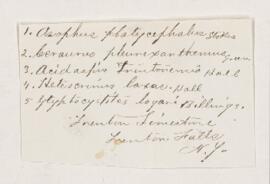 1. Asaphus platycephalus Stokes
2. Ceraurus pleurexanthemus Green
3. Acidaspis Trentonensis Hall
4. Heterocrinus Hall
5 Glyptocystites logani Billings.
Trenton Limestone
Trenton Falls
N.Y.